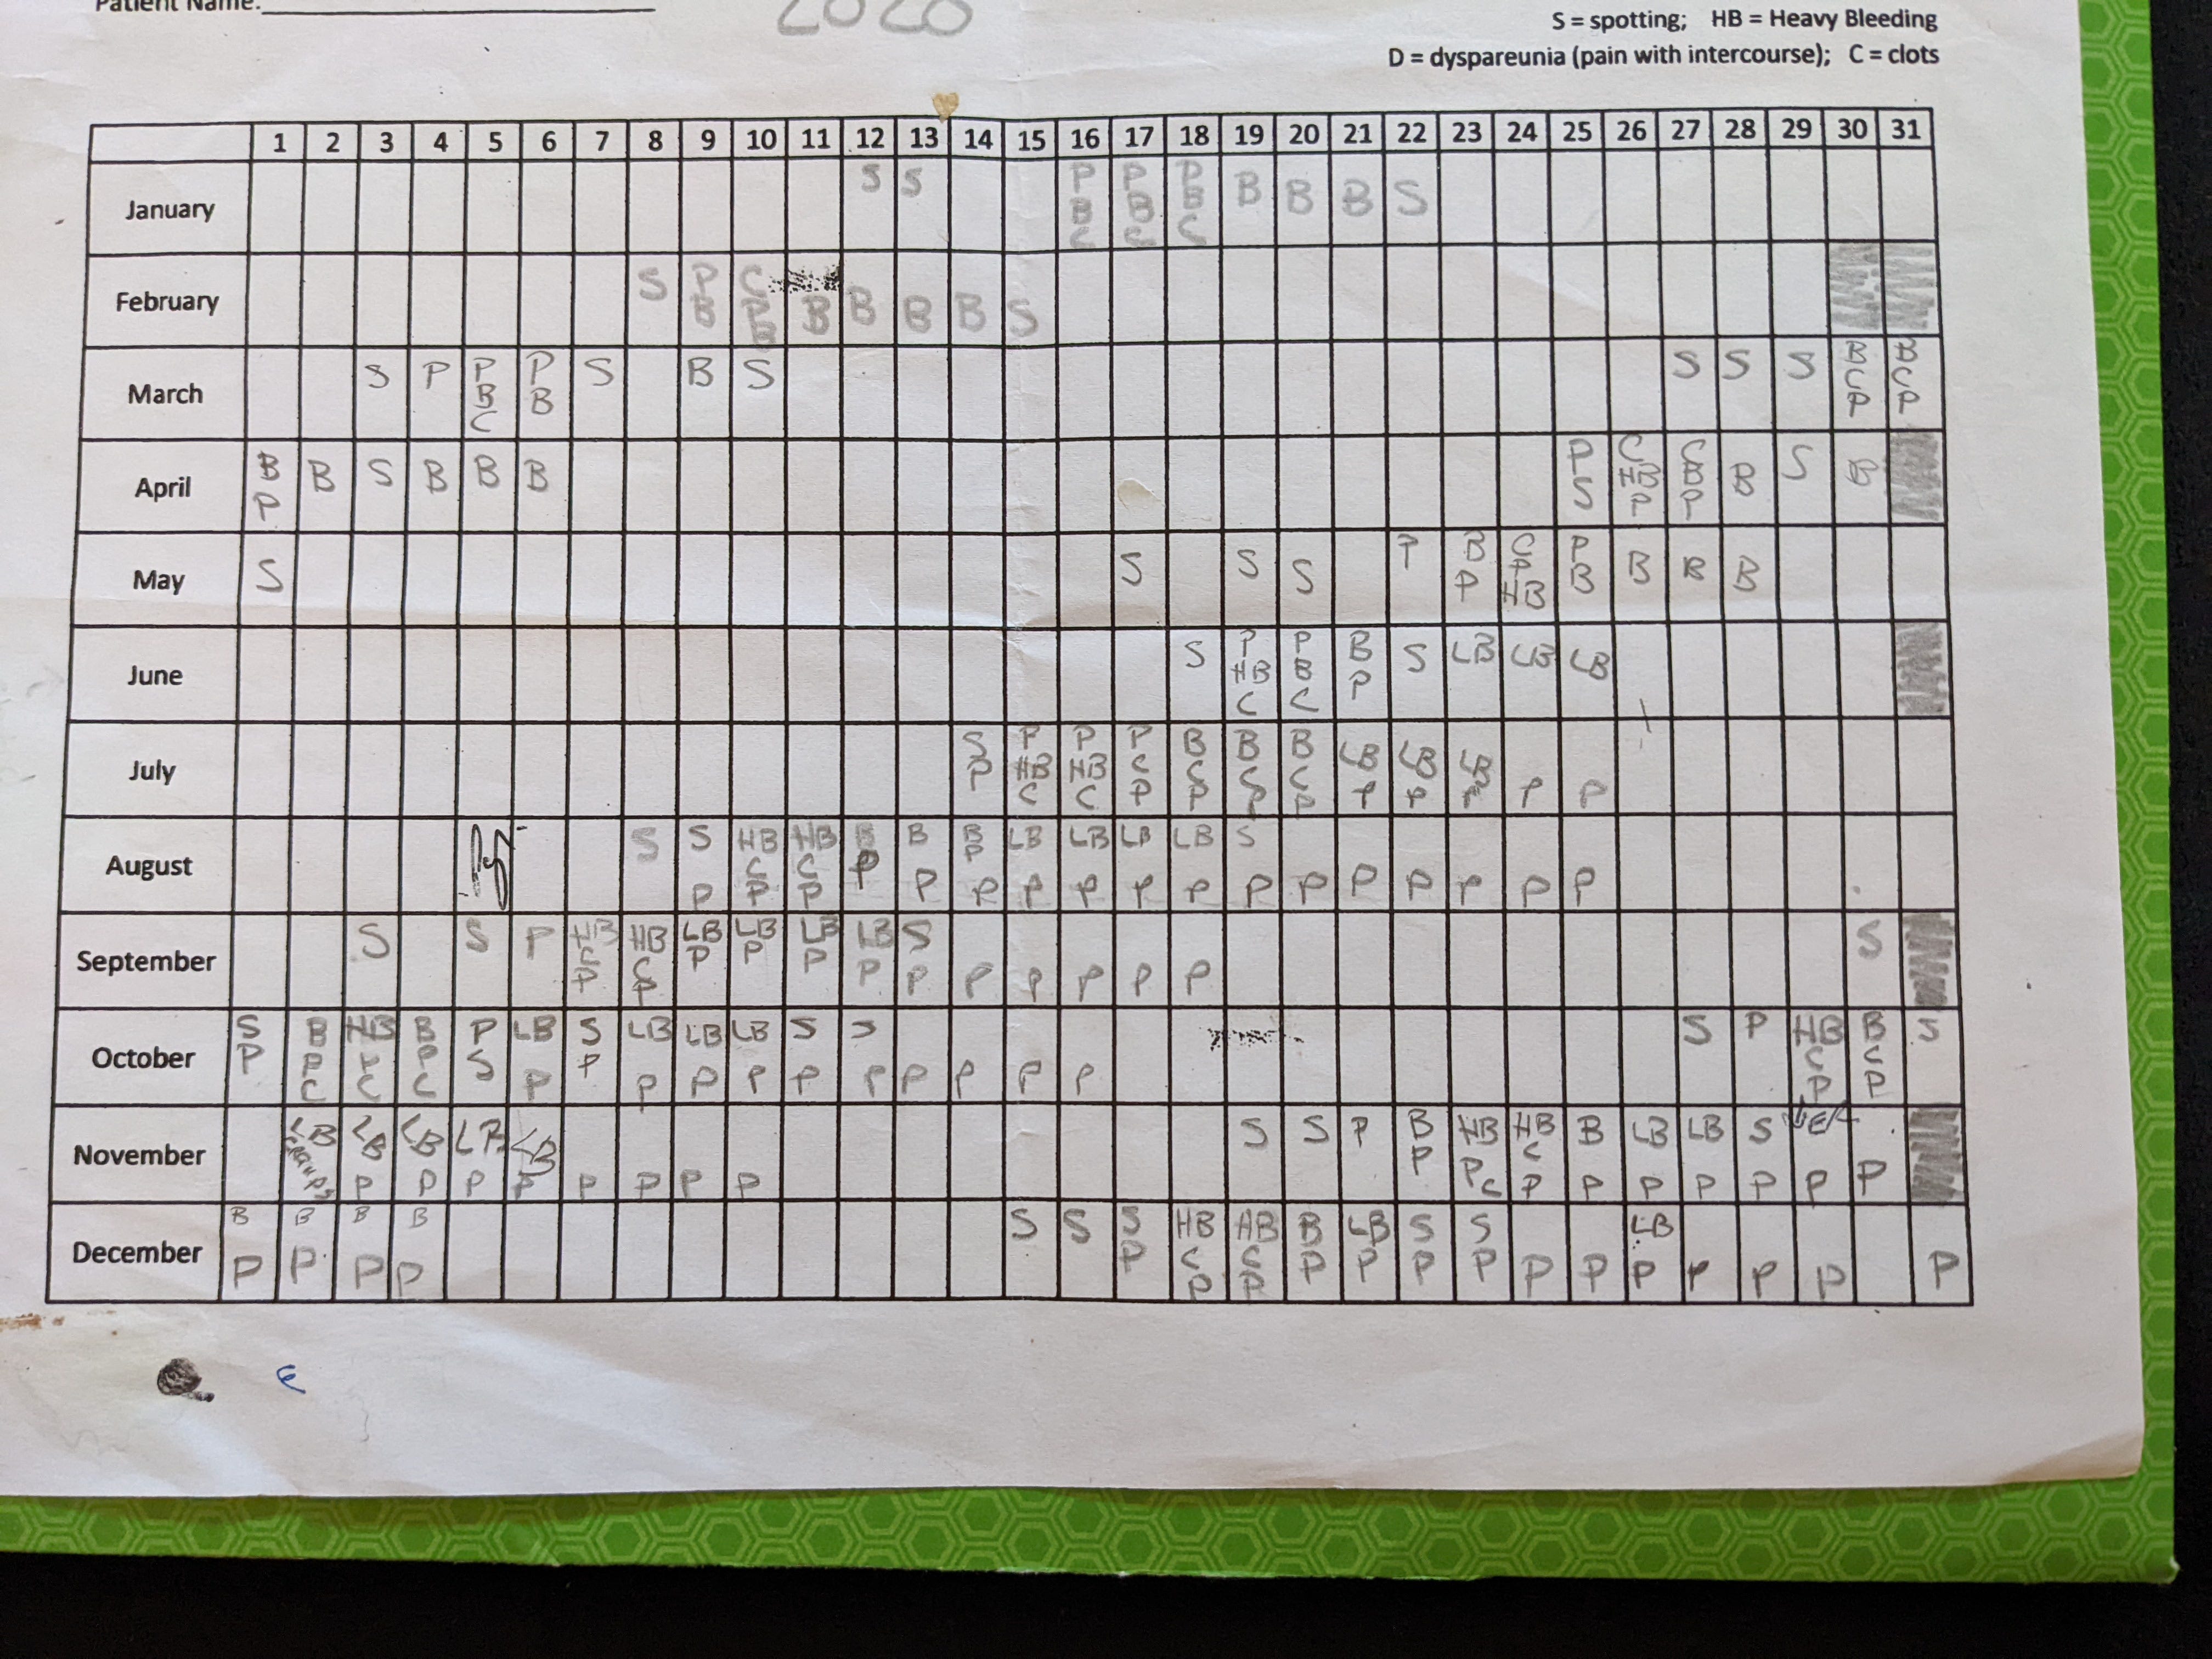 Patient Name:
2020
S = spotting; HB = Heavy Bleeding
D = dyspareunia (pain with intercourse); C = clots
1 2 3 4 5 6 7 8 9 10 11 12 13 14 15 16 17 18 19 20 21 22 23 24 25 26 27 28 29 30 31
January S S P B C P B C P B C B B B S
February S P B C P B B B B B S
March S P P B C P B S B S S S S B C P B C P
April B P B S B B B P S C HB P C B P B S B
May S S S S P B P C P HB P B B B B
June S P HB C P B C B P S LB LB LB
July S P P HB C P HB C P C P B C P B C P B C P LB P LB P LB P P P
August S S P HB C P HB C P B P B P B P P LB P LB P LB P LB P S P P P P P P P
September S S P HB C P HB C P LB P LB P LB P LB P S P P P P P P S
October S P B P C HB P C B P C P S LB P S P LB P LB P LB P S P S P P P P P S P HB C P B C P S
November LB LB P LB P LB P LB P P P P P S S P B P HB P C HB C P B P LB P LB P S P P P
December B P B P B P B P S S S P HB C P HB C P B P LB P S P S P P P LB P P P P P